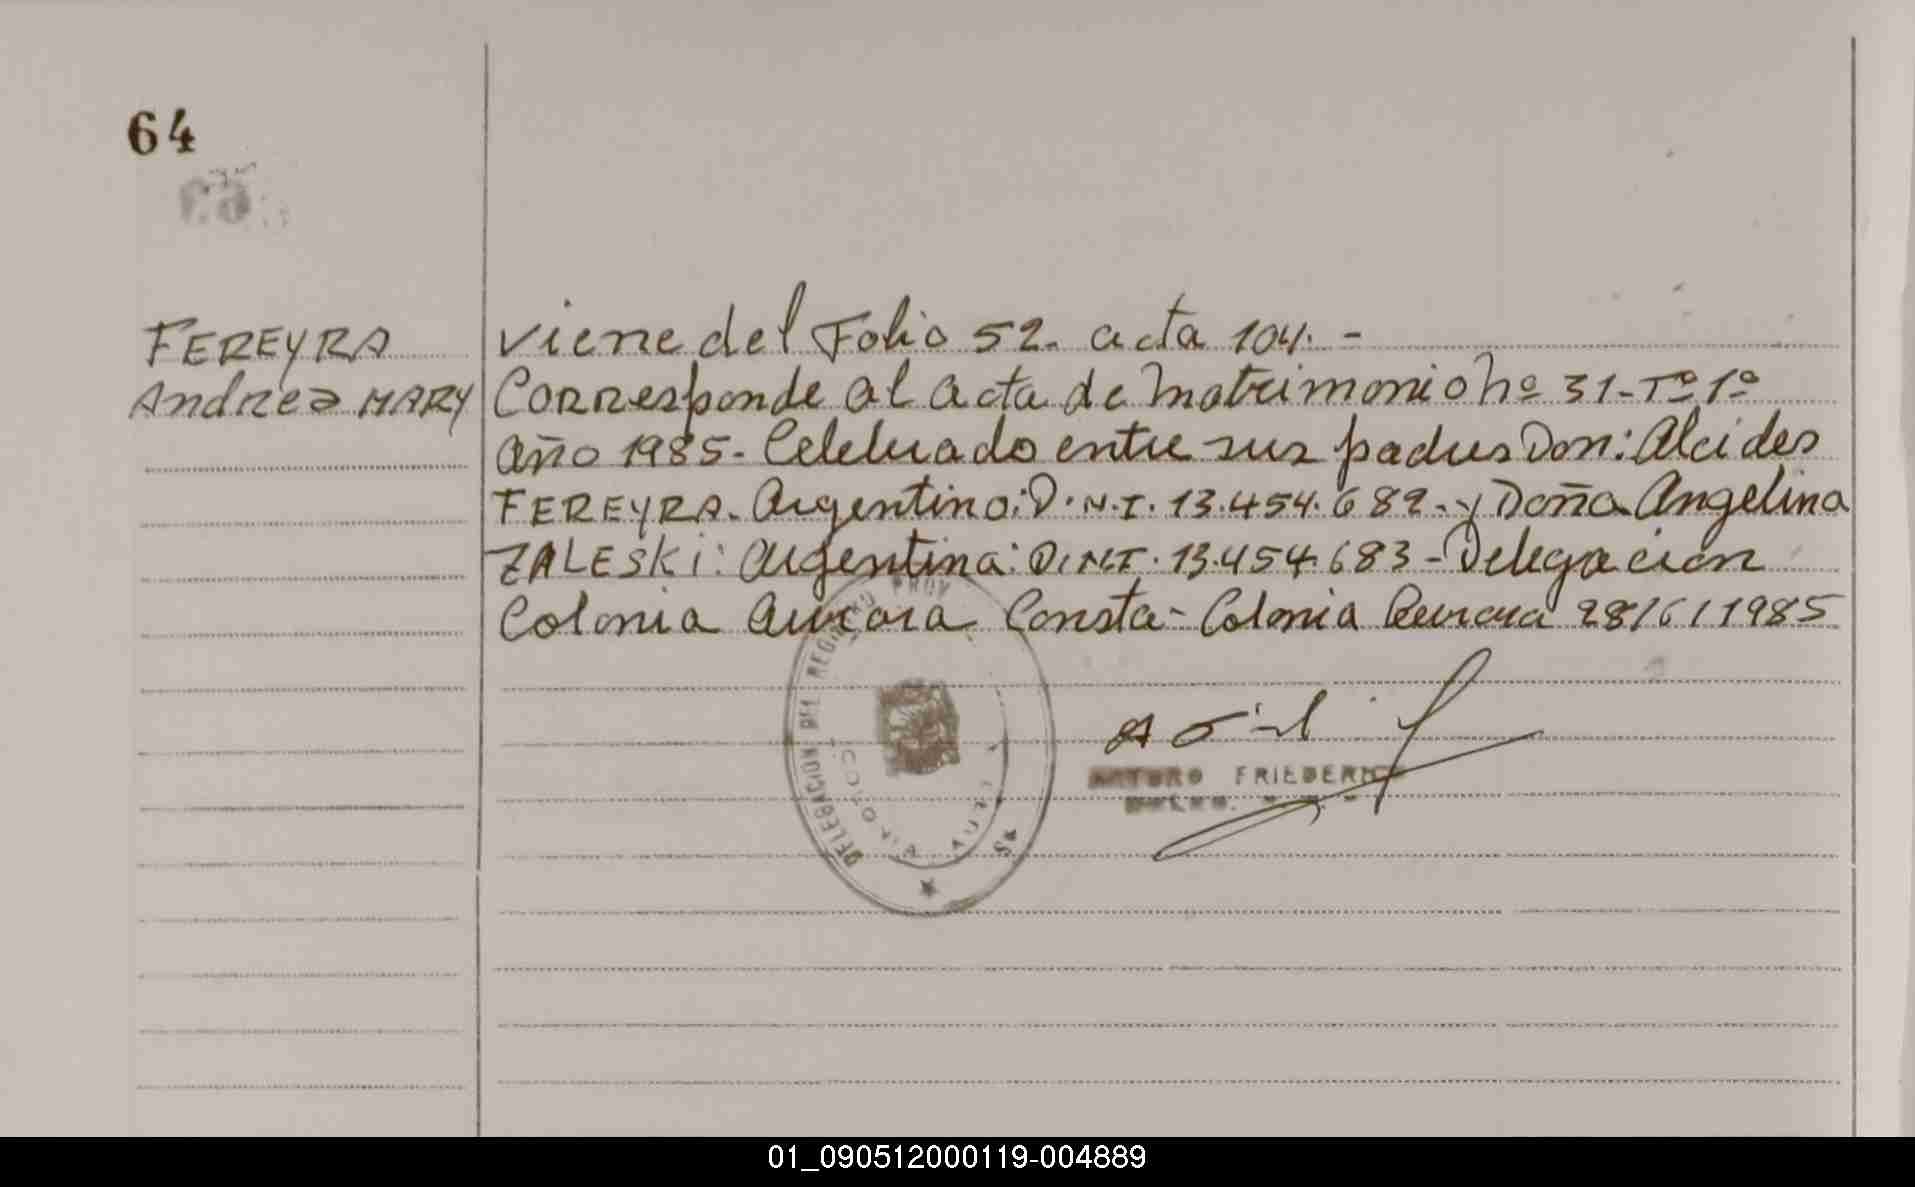 64
FEREYRA
Andrea MARY
viene del Folio 52. acta 104. -
Corresponde al acta de Matrimonio Nº 31-Tº 1º
año 1985- Celebrado entre sus padres Don: Alcides
FEREYRA. Argentino: D.N.I. 13.454.682- y Doña Angelina
ZALESKi: Argentina: D.N.I. 13.454.683- Delegación
Colonia Aurora Consta- Colonia Aurora 28/6/1985
DELEGACION DEL REGISTRO PROV
COLONIA AURORA
ARTURO FRIEDERI
01_090512000119-004889